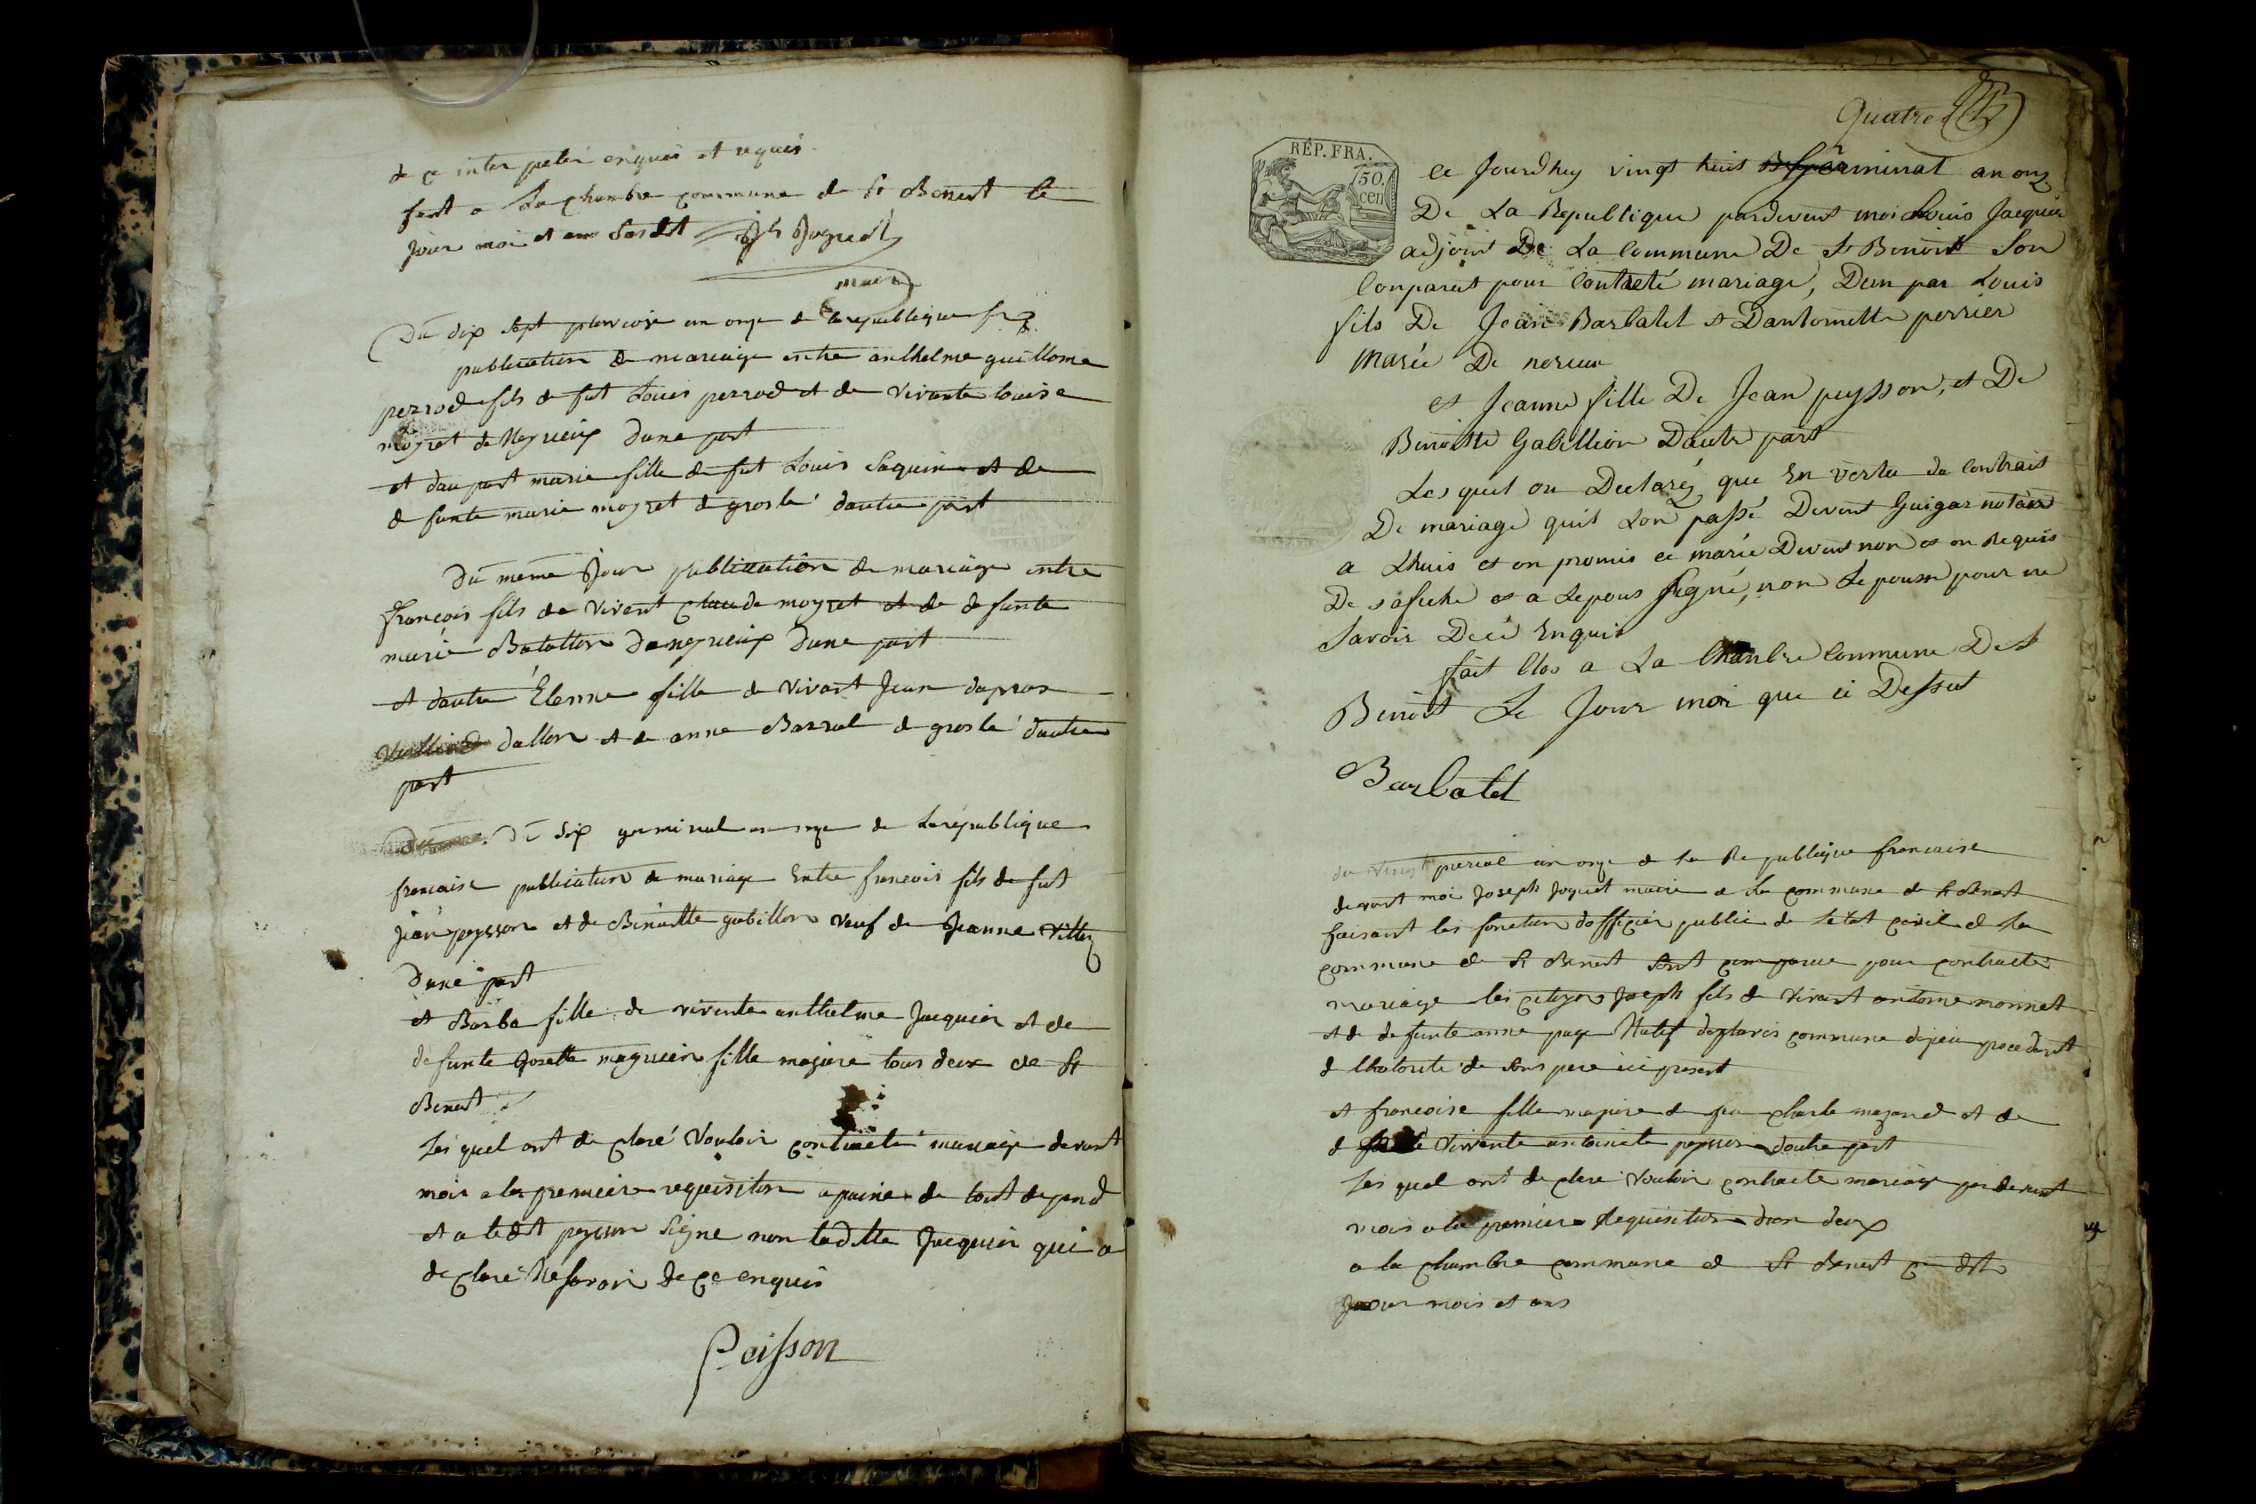 de ce inter peller enquis et requis
fait a La chambre commune de St Benest le
jour moi et an susdit Jh Joguet
maire
Du dix sept pluviose an onze de la republique fr
publication de mariage entre anthelme guillome
perrod fils de fut Louis perrod et de vivante louise
moyret de Neyrieux dune part
et dau part marie fille de fut Louis Saquin et de
de funte marie moyret de groslé dautre part
Du meme Jour publication de mariage entre
françois fils de vivent Claude moyret et de de funte
marie Batallion de neyrieux dune part
et dautre Étienne fille de vivant Jean
dallon et de anne Barral de groslé dautre
part
Du dix germinal an onze de La republique
francaise publication de mariage Entre francois fils de fut
jean peysson et de Binoitte gabillon veuf de Jeanne
dune part
et Barba fille de vivente anthelme Jacquier et de
defunte Josette fille majure tous deux de St
Benest
Les quel ont de claré vouloir contracté mariage devant
moi a la premiere requisition a paine de tout depend
et a le dit peysson signe non la ditte Jacquier qui a
de claré Ne savoir de ce enquis
Peisson
Quatre
RÉP. FRA.
50.
cen
ce Jourdhuy vingt huit Germinal an onz
De La Republique pardevent moi Louis Jacquier
adjoint De La Commune De St Binoit Son
Conparut pour Contreté mariage, Dun par Louis
fils De Jean Barbatel et Dantoinette perrier
Marié De nerieu
et Jeanne fille De Jean peysson, et De
Binoitte Gabillion Dautre part
Les quel on Declarez que En vertu du Contrait
De mariage quil Lon passé Devent Guigar notaire
a Lhuis et on promis ce marié Devent non et on Requis
De safiche et a Lepous signé, non Lepouse pour ne
Savoir Deci Enquis
fait Clos a La Chanbre Commune De St
Binoit Le Jour moi que ci Dessut
Barbatel
du vingt prerial an onze de La Republique francaise
devant moi Joseph Joguet maire de La commune de St Benest
faisant les fonction dofficier public de letat civil de La
commune de St Benest Sont comparue pour contracter
mariage les citoyen Joseph fils de vivant antoine monnet
et de de funte anne page Natif commune
de lhotorité de sons pere ici present
et francoise fille majure de feu Charle mazand et de
de vivente antoinete peysson dautre part
Les quel ont de claré vouloir contracte mariage par devant
mois a la premiere Requisition dun deux
a la chambre commune de St Benest ce dit
Jour mois et ans